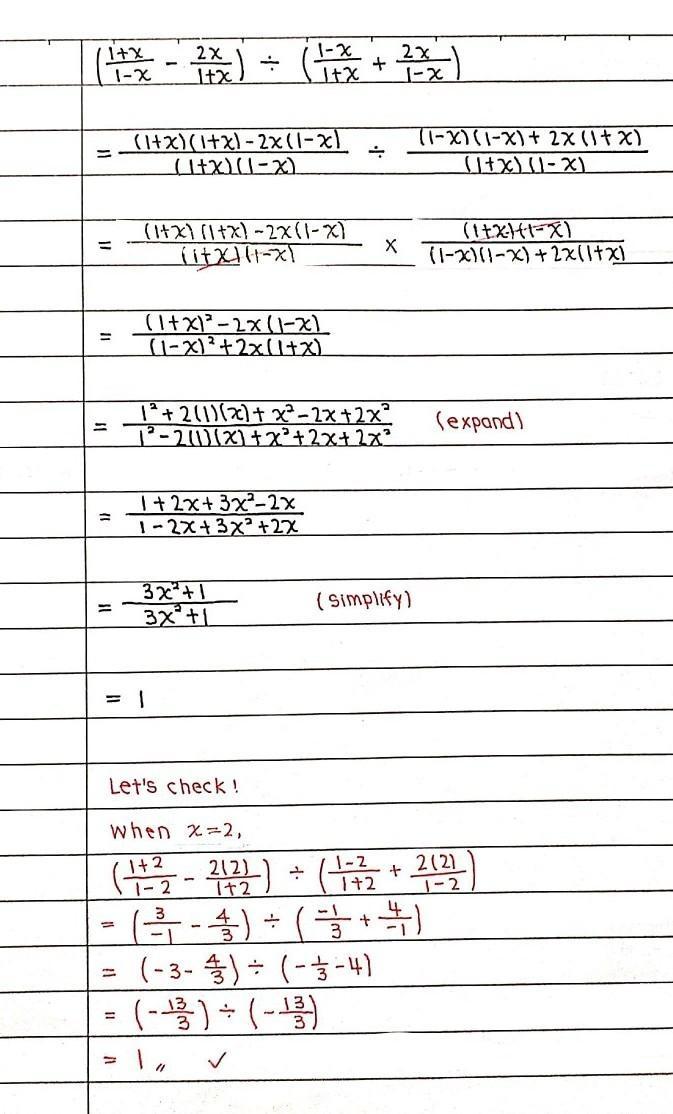 (\frac{1+x}{1-x} - \frac{2x}{1+x}) ÷ (\frac{1-x}{1+x} + \frac{2x}{1-x})
= \frac{(1+x)(1+x)-2x(1-x)}{(1+x)(1-x)} ÷ \frac{(1-x)(1-x)+2x(1+x)}{(1+x)(1-x)}
= \frac{(1+x)(1+x)-2x(1-x)}{(1+x)(1-x)} × \frac{(1+x)(1-x)}{(1-x)(1-x)+2x(1+x)}
= \frac{(1+x)²-2x(1-x)}{(1-x)²+2x(1+x)}
= \frac{1²+2(1)(x)+x²-2x+2x²}{1²-2(1)(x)+x²+2x+2x²} (expand)
= \frac{1+2x+3x²-2x}{1-2x+3x²+2x}
= \frac{3x²+1}{3x²+1} (simplify)
= 1
Let's check!
When x=2,
(\frac{1+2}{1-2} - \frac{2(2)}{1+2}) ÷ (\frac{1-2}{1+2} + \frac{2(2)}{1-2})
= (\frac{3}{-1} - \frac{4}{3}) ÷ (\frac{-1}{3} + \frac{4}{-1})
= (-3-\frac{4}{3}) ÷ (-\frac{1}{3}-4)
= (-\frac{13}{3}) ÷ (-\frac{13}{3})
= 1,, ✓